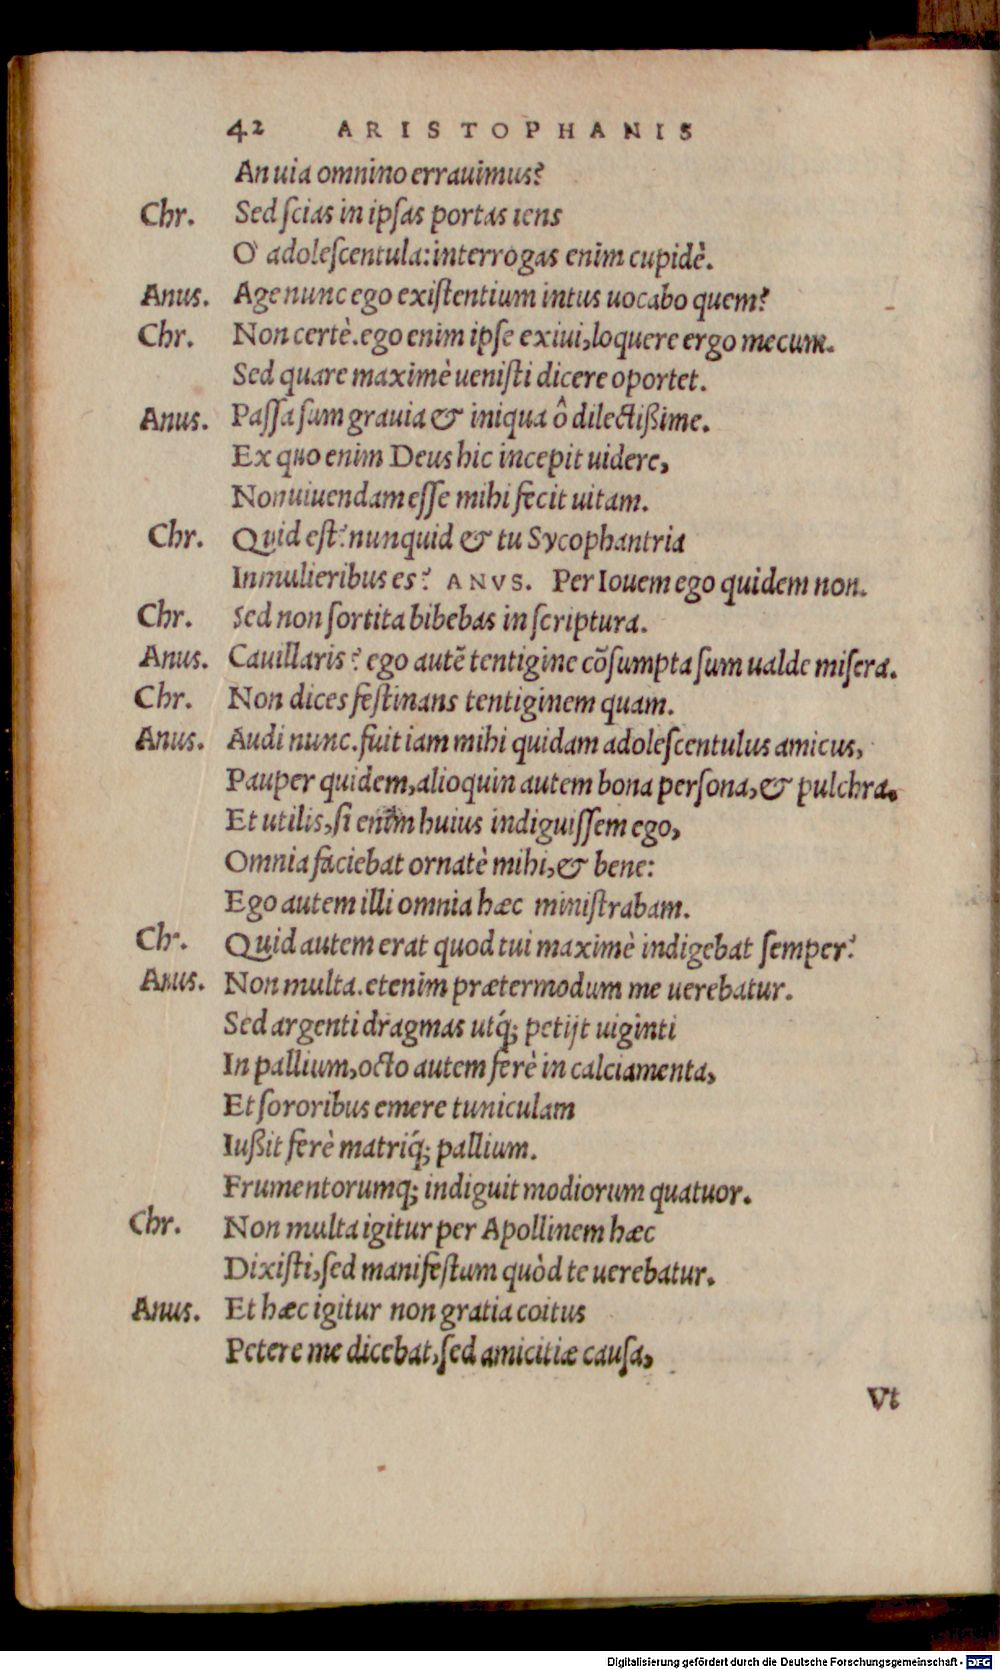 42 ARISTOPHANIS
An uia omnino errauimus?
Chr. Sed ſcias in ipſas portas iens
O adoleſcentula: interrogas enim cupidè.
Anus. Age nunc ego exiſtentium intus uocabo quem?
Chr. Non certè. ego enim ipſe exiui, loquere ergo mecum.
Sed quare maximè ueniſti dicere oportet.
Anus. Paſſa ſum grauia & iniqua ô dilectißime.
Ex quo enim Deus hic incepit uidere,
Non uiuendam eſſe mihi fecit uitam.
Chr. Quid eſt? nunquid & tu Sycophantria
In mulieribus es? ANVS. Per Iouem ego quidem non.
Chr. Sed non ſortita bibebas in ſcriptura.
Anus. Cauillaris? ego autẽ tentigine cõſumpta ſum ualde miſera.
Chr. Non dices feſtinans tentiginem quam.
Anus. Audi nunc. fuit iam mihi quidam adoleſcentulus amicus,
Pauper quidem, alioquin autem bona perſona, & pulchra.
Et utilis, ſi enim huius indiguiſſem ego,
Omnia faciebat ornatè mihi, & bene:
Ego autem illi omnia hæc miniſtrabam.
Chr. Quid autem erat quod tui maximè indigebat ſemper?
Anus. Non multa. etenim prætermodum me uerebatur.
Sed argenti dragmas utq́; petijt uiginti
In pallium, octo autem ferè in calciamenta,
Et ſororibus emere tuniculam
Iußit ferè matriq́; pallium.
Frumentorumq; indiguit modiorum quatuor.
Chr. Non multa igitur per Apollinem hæc
Dixiſti, ſed manifeſtum quòd te uerebatur.
Anus. Et hæc igitur non gratia coitus
Petere me dicebat, ſed amicitiæ cauſa,
Vt
Digitalisierung gefördert durch die Deutsche Forschungsgemeinschaft - DFG